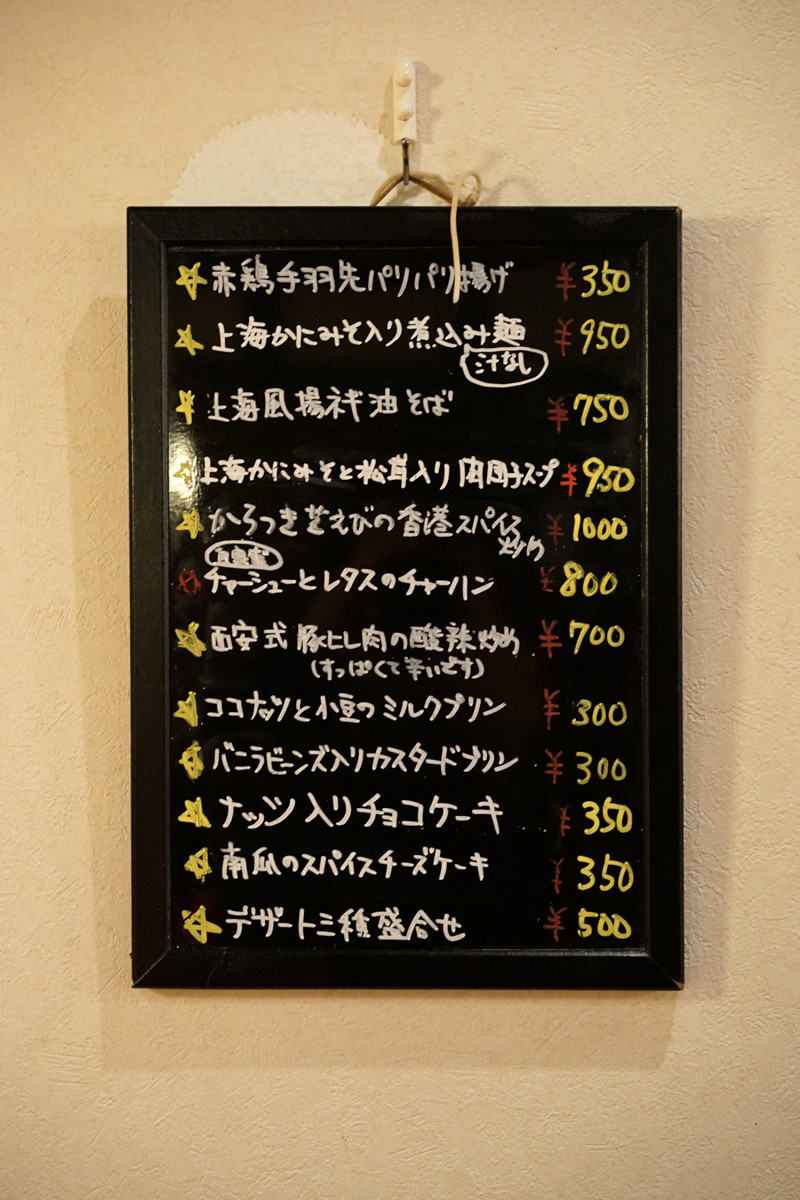 ☆赤鶏手羽先パリパリ揚げ ¥350
☆上海かにみそ入り煮込み麺 ¥950
汁なし
☆上海風揚ネギ油そば ¥750
☆上海かにみそと松茸入り肉団子スープ ¥950
☆からつき芝えびの香港スパイス炒め ¥1000
チャーシューとレタスのチャーハン ¥800
☆西安式豚ヒレ肉の酸辣炒め ¥700
(すっぱくて辛いです)
☆ココナッツと小豆のミルクプリン ¥300
☆バニラビーンズ入りカスタードプリン ¥300
☆ナッツ入りチョコケーキ ¥350
☆南瓜のスパイスチーズケーキ ¥350
☆デザート三種盛合せ ¥500